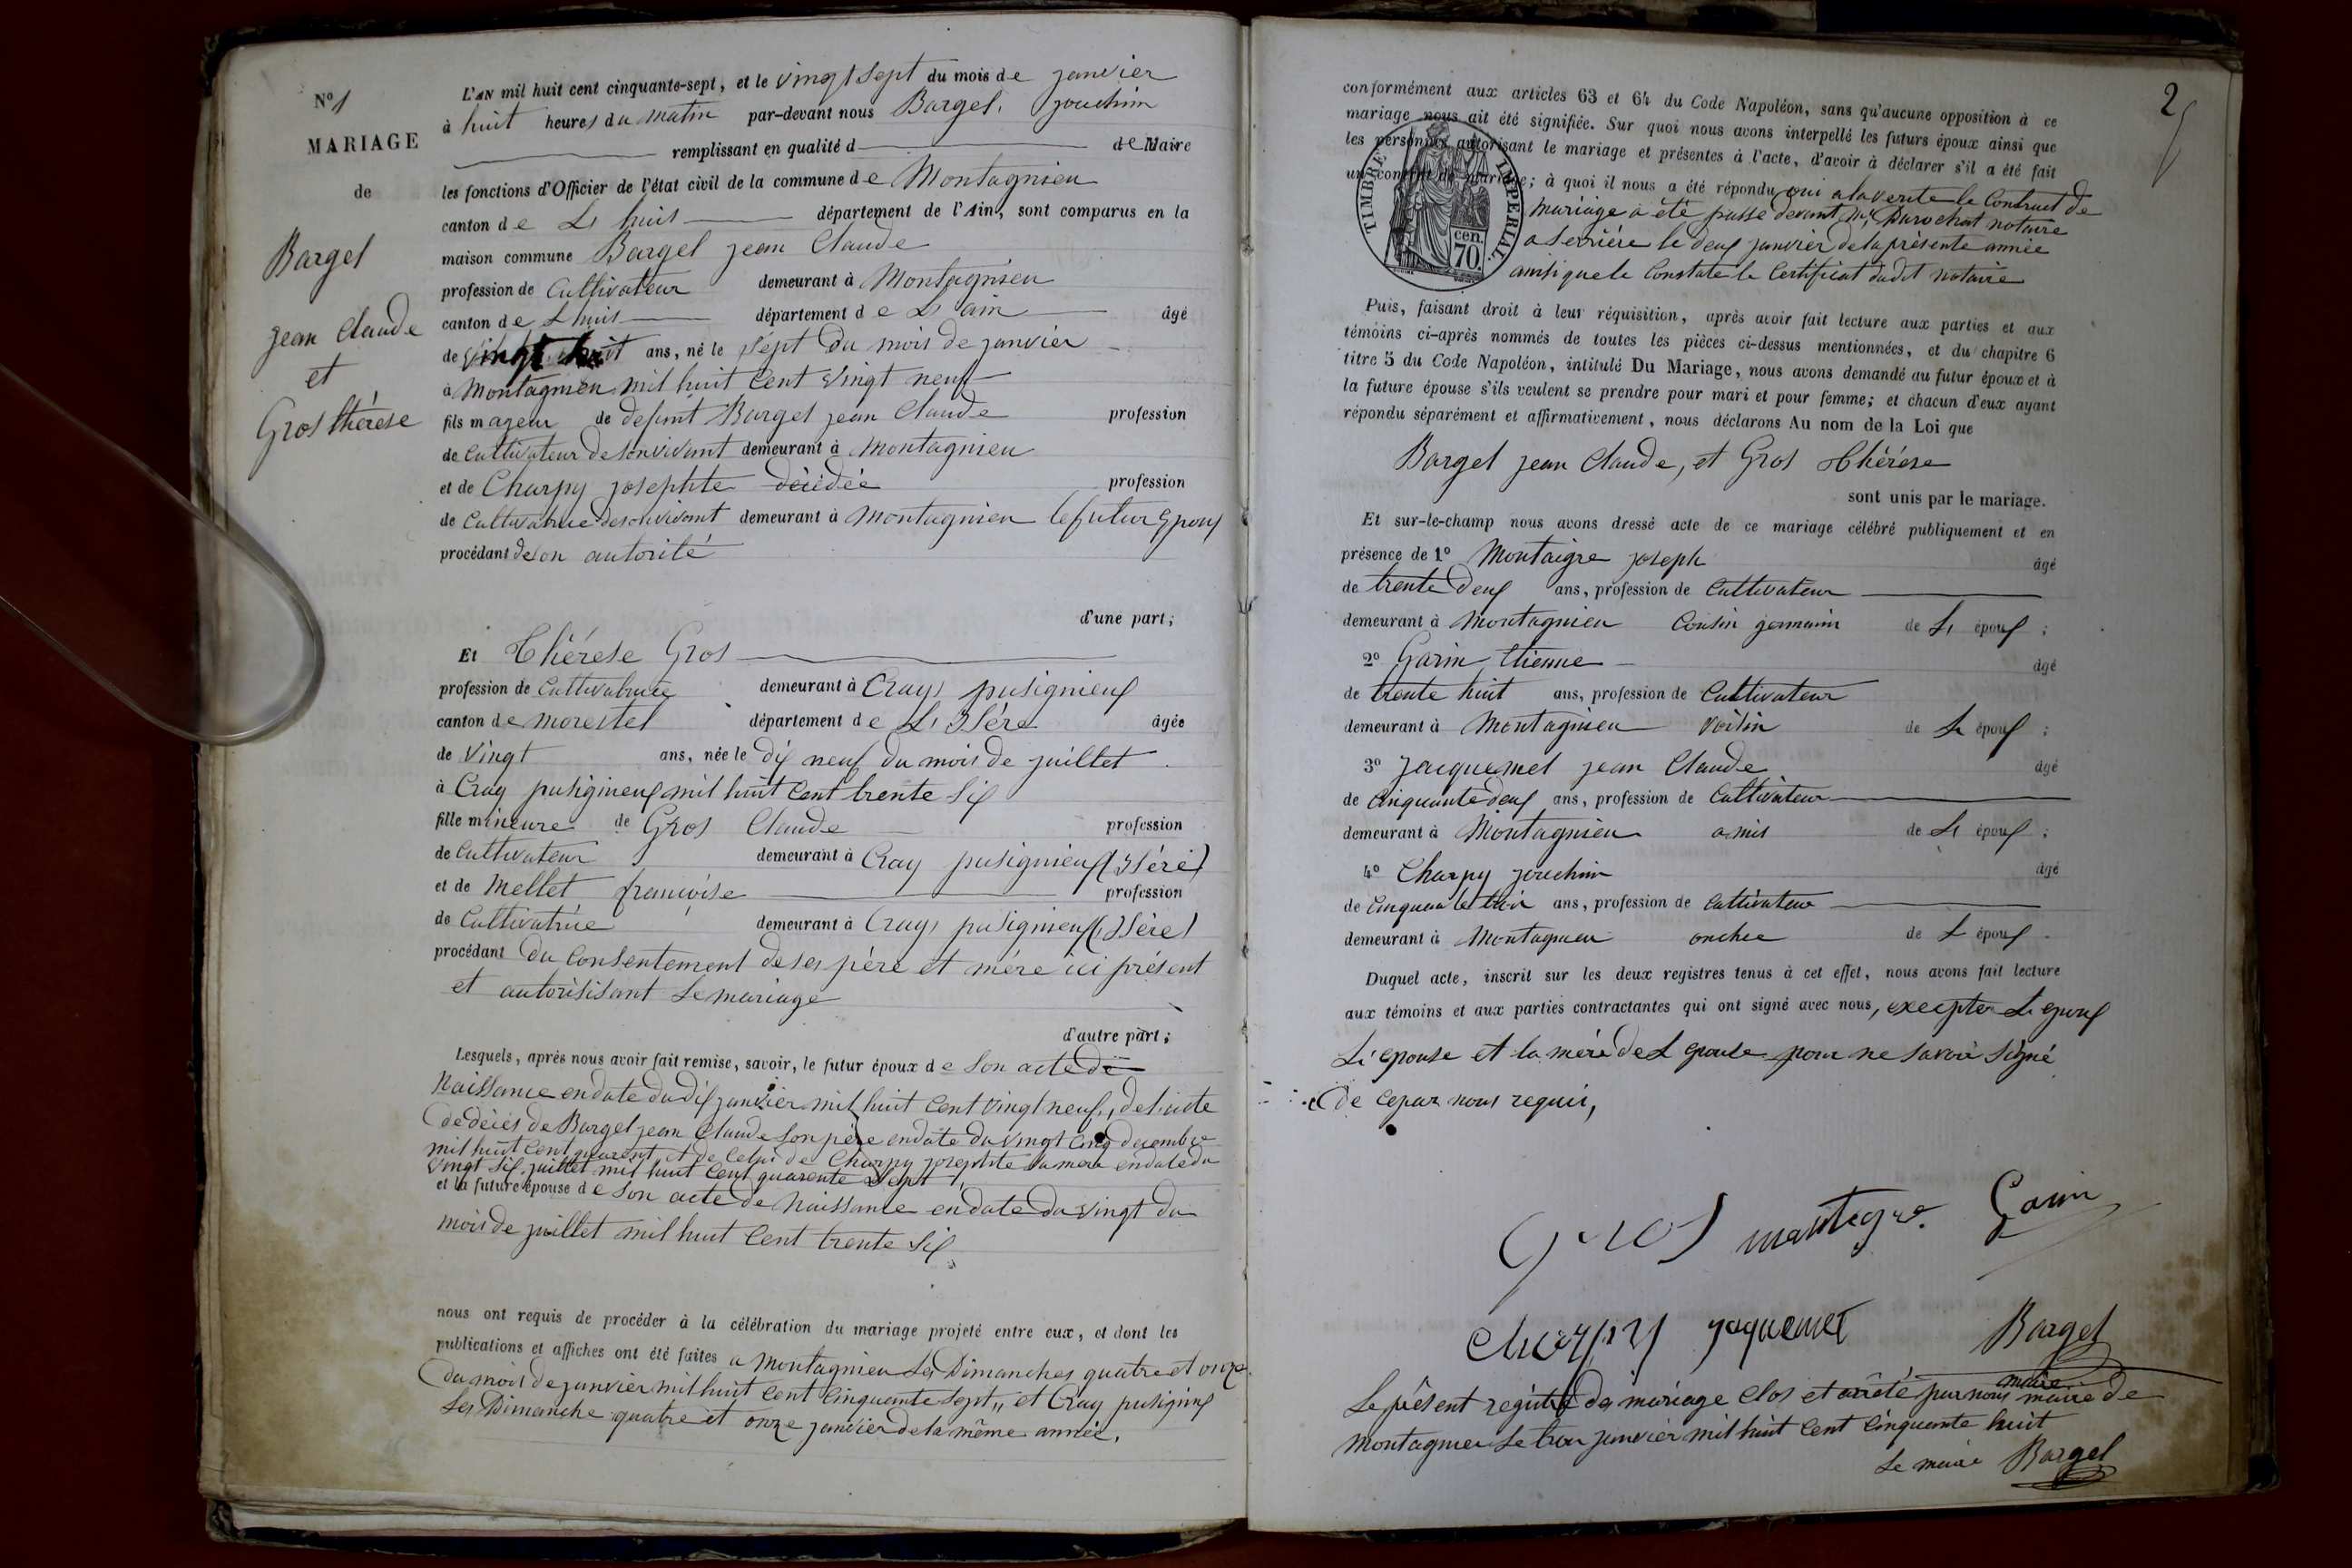 N° 1
MARIAGE
de
Bargel
jean Claude
et
Gros thérèse
L'AN mil huit cent cinquante-sept, et le vingt sept du mois de janvier
à huit heures du matin par-devant nous Bargel jouchim
remplissant en qualité d de Maire
les fonctions d'Officier de l'état civil de la commune de Montagnieu
canton de L huis département de l'Ain, sont comparus en la
maison commune Bargel jean Claude
profession de Cultivateur demeurant à Montagnieu
canton de L huis département de L ain âgé
de vingt huit ans, né le sept du mois de janvier
à Montagnieu mil huit Cent vingt neuf
fils mageur de defunt Bargel jean Claude profession
de Cultivateur de son vivant demeurant à Montagnieu
et de Charpy josephte décédée profession
de Cultivatrice de son vivant demeurant à Montagnieu le futur Epoux
procédant de son autorité
d'une part;
Et Thérèse Gros
profession de Cultivatrice demeurant à Crays pusignieux
canton de morestel département de L Isére âgée
de vingt ans, née le dix neuf du mois de juillet
à Cray pusignieux mil huit Cent trente six
fille mineure de Gros Claude profession
de Cultivateur demeurant à Cray pusignieux (Isére)
et de Mellet françoise profession
de Cultivatrice demeurant à Crays pusignieux (Isére)
procédant du Consentement de ses père et mère ici présent
et autorisisant le mariage
d'autre part;
Lesquels, après nous avoir fait remise, savoir, le futur époux de Son acte de
Naissance en date du dix janvier mil huit Cent vingt neuf, de l'acte
de décès de Bargel jean Claude Son père en date du vingt Cinq decembre
mil huit Cent quarent et de Celui de Charpy josephte sa mère en date du
vingt six juillet mil huit Cent quarente Sept,
et la future épouse de Son acte de Naissance en date du vingt du
mois de juillet mil huit Cent trente six
nous ont requis de procéder à la célébration du mariage projeté entre eux, et dont les
publications et affiches ont été faites a Montagnieu Les Dimanches quatre et onze
du mois de janvier mil huit Cent Cinquante Sept, et Cray pusignieux
Les Dimanche quatre et onze janvier de la même année.
2
conformément aux articles 63 et 64 du Code Napoléon, sans qu'aucune opposition à ce
mariage nous ait été signifiée. Sur quoi nous avons interpellé les futurs époux ainsi que
les personnes autorisant le mariage et présentes à l'acte, d'avoir à déclarer s'il a été fait
un contrat de mariage; à quoi il nous a été répondu oui a la verité le Contract de
TIMBRE IMPERIAL
70 cen.
mariage a été passé devant Me Durochat notaire
a Serriére le deux janvier de la présente année
ainsi que le Constate le Certificat dudit notaire
Puis, faisant droit à leur réquisition, après avoir fait lecture aux parties et aux
témoins ci-après nommés de toutes les pièces ci-dessus mentionnées, et du chapitre 6
titre 5 du Code Napoléon, intitulé Du Mariage, nous avons demandé au futur époux et à
la future épouse s'ils veulent se prendre pour mari et pour femme; et chacun d'eux ayant
répondu séparément et affirmativement, nous déclarons Au nom de la Loi que
Bargel jean Claude, et Gros Thérèse
sont unis par le mariage.
Et sur-le-champ nous avons dressé acte de ce mariage célébré publiquement et en
présence de 1° Montaigre joseph âgé
de trente deux ans, profession de Cultivateur
demeurant à Montagnieu Cousin germain de L époux;
2° Garin Etienne âgé
de trente huit ans, profession de Cultivateur
demeurant à Montagnieu voisin de L époux;
3° Jacquemet jean Claude âgé
de Cinquante deux ans, profession de Cultivateur
demeurant à Montagnieu amis de L époux;
4° Charpy jouchim âgé
de Cinquante trois ans, profession de Cultivateur
demeurant à Montagnieu onchee de L époux.
Duquel acte, inscrit sur les deux registres tenus à cet effet, nous avons fait lecture
aux témoins et aux parties contractantes qui ont signé avec nous, excepter L epoux
L'epouse et la mére de L epouse pour ne savoir Signé
de Ce par nous requis,
Gros montegre Garin
Charpy jaquemet Bargel
maire
Le présent registre de mariage clos et arrêté par nous maire de
Montagnieu Le trois janvier mil huit Cent Cinquante huit
Le maire Bargel